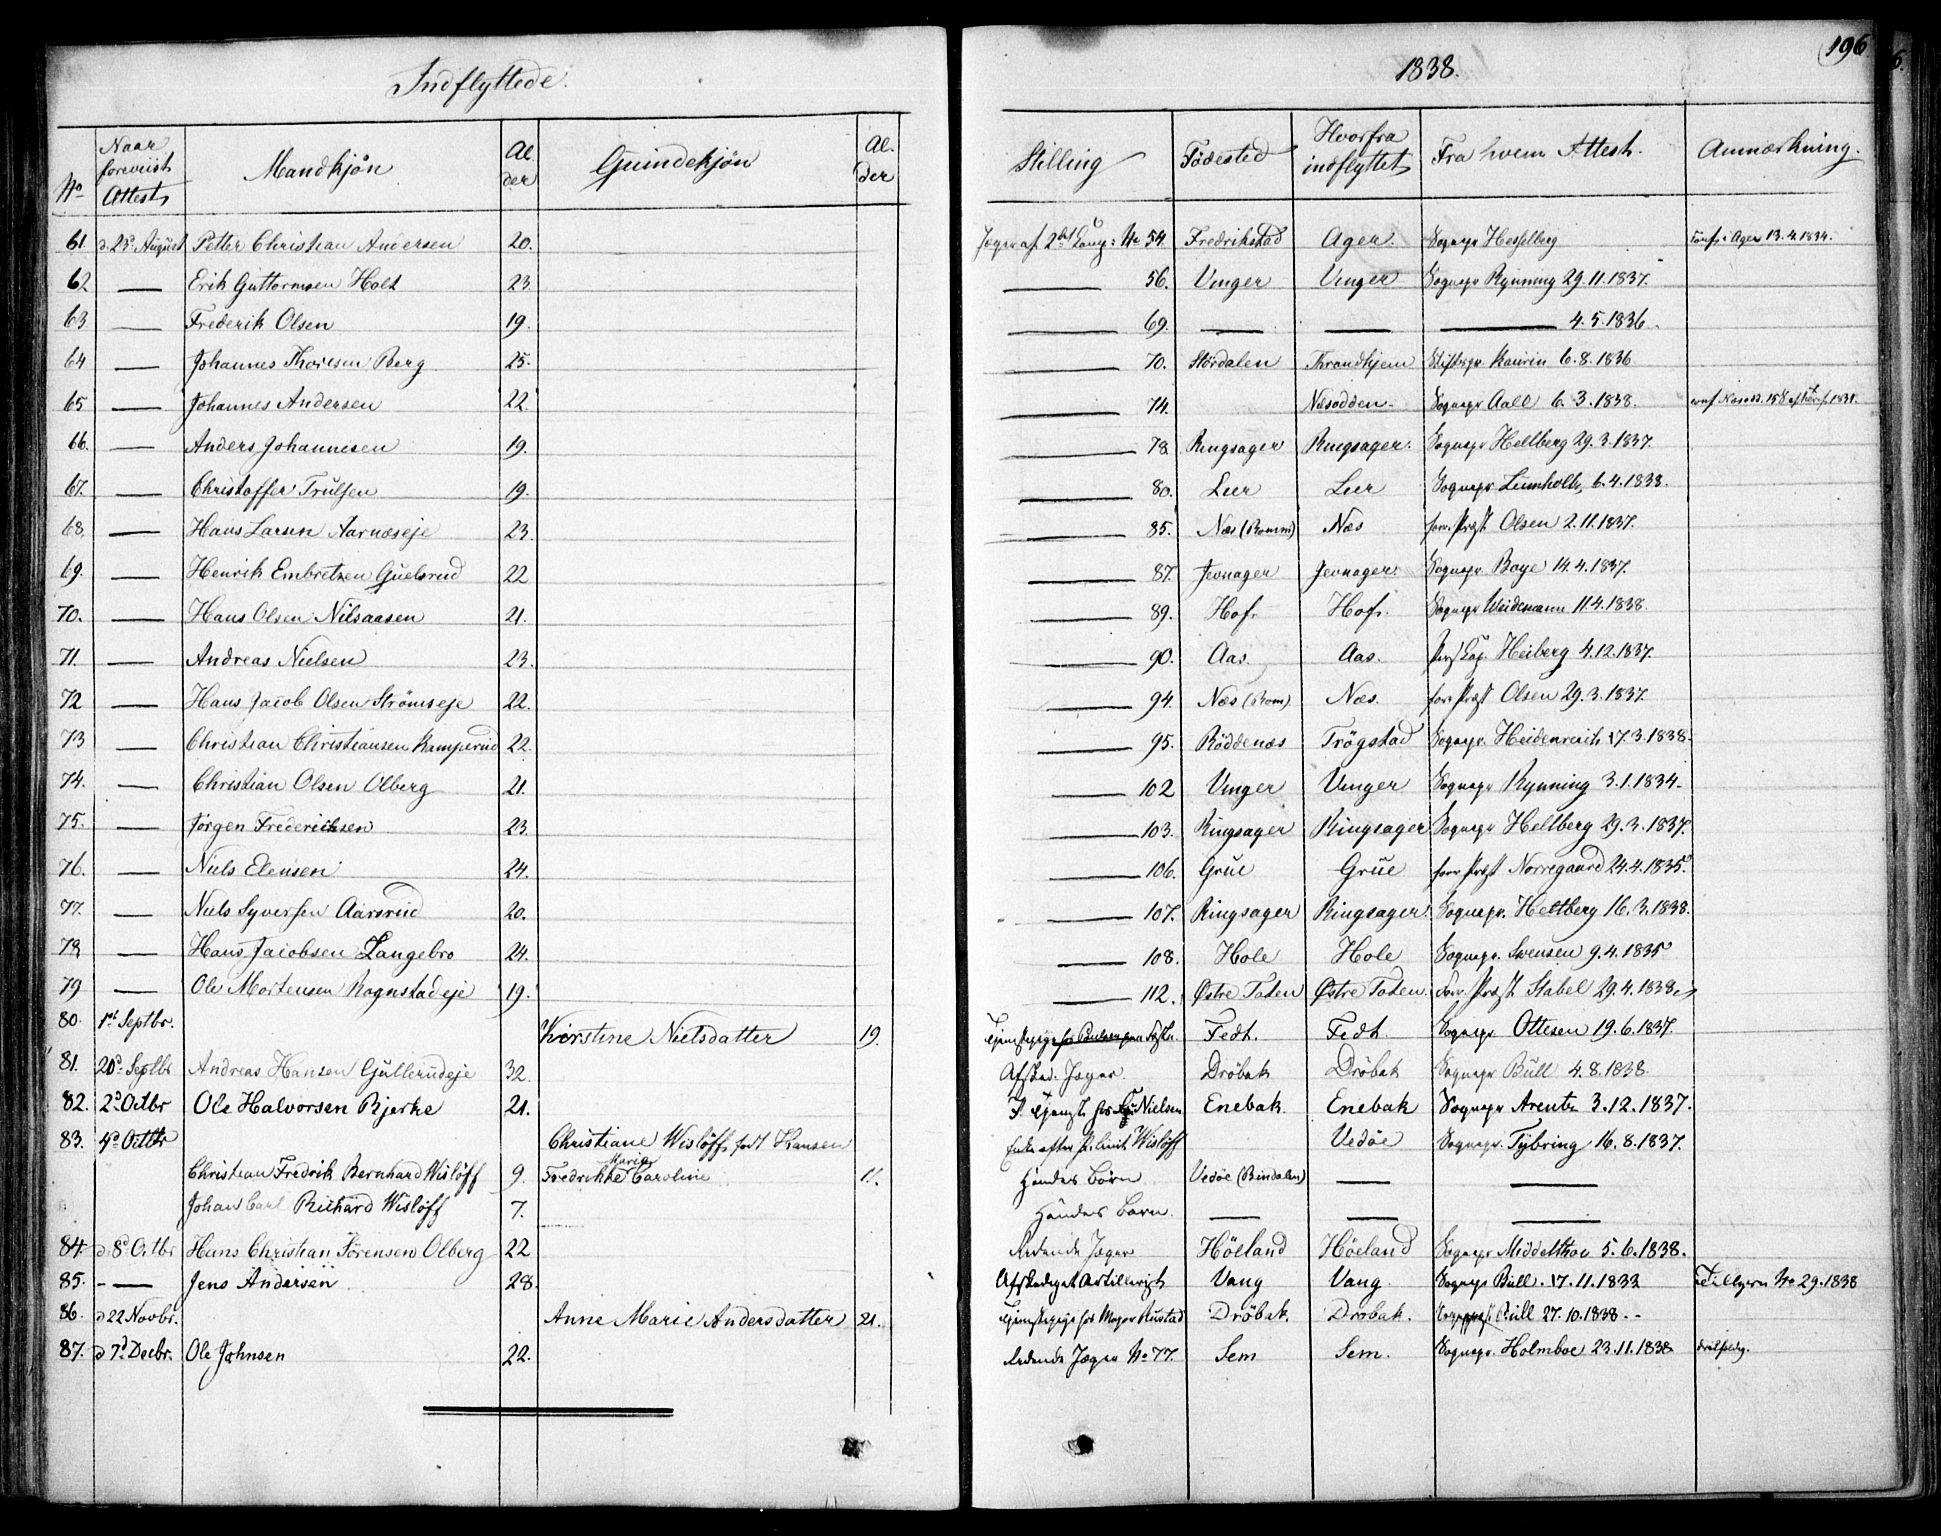 196
6.
Indflyttede. 1838.
No Naar foreviist Attest Mandkjön Alder Quindekjön Alder Stilling Födested Hvorfra indflyttet Fra hvem Attest. Anmærkning.
61. d. 23d August Petter Christian Andersen 20. No 54. Fredrikstad Ager. Sognepr Hesselberg Ager 13.4.1834.
62 — Erik Guttormsen Holt 23. — 56. Vinger Vinger Sognepr Rynning 29.11.1837.
63 — Frederik Olsen 19. — 69. — — — 4.5.1836.
64 — Johannes Thoresen Berg 25. — 70. Stördalen Throndhjem Stiftspr Kaurin 6.8.1836
65 — Johannes Andersen 22. — 74. Næsodden. Sognepr Aall 6.3.1838.
66. — Anders Johannesen 19. — 78 Ringsager Ringsager. Sognepr Hellberg 29.3.1837.
67. — Christoffer Trulsen 19. — 80. Leer Leer Sognepr 6.4.1838.
68. — Hans Larsen Aarnæseje 23. — 85. Næs (Romm) Næs forr. Præst Olsen 2.11.1837.
69. — Henrik Embretsen Guelsrud 22 — 87. Jevnager Jevnager. Sognepr Boye 14.4.1837.
70. — Hans Olsen Nilsaasen 21. — 89. Hof. Hof. Sognepr Weidemann 11.4.1838.
71. — Andreas Nielsen 23. — 90. Aas. Aas. Pers Cap. Heiberg 4.12.1837.
72 — Hans Jacob Olsen Strömseje 22. — 94. Næs (Rom) Næs. forr. Præst Olsen 29.3.1837.
73 — Christian Christiansen Kamperud 22. — 95. Röddenæs Trögstad Sognepr. Heidenreich 17.3.1838.
74. — Christian Olsen Olberg 21. — 102 Vinger Vinger Sognepr Rynning 3.1.1834.
75. — Jörgen Frederichsen 23 — 103. Ringsager Ringsager Sognepr Hellberg 29.3.1837.
76. — Niels Elensen 24. — 106. Grue Grue forr Præst Norregaard 24.4.1835.
77. — Niels Syversen Aarsrud 20. — 107. Ringsager Ringsager. Sognepr. Hellberg 16.3.1838.
78 — Hans Jacobsen Langebro 24. — 108. Hole Hole Sognepr. Svensen 9.4.1835
79 — Ole Mortensen Rognstadeje 19. — 112. Østre Toten Østre Toten. Forr. Præst. Stabel 29.4.1838
80. 1st Septbr. Kirstine Nielsdatter 19. Tjenstepige Fedt. Fedt. Sognepr Ottesen 19.6.1837.
81. 20d Septbr Andreas Hansen Gullerudeje 32. Afsked. Jæger. Dröbak Dröbak Sognepr Bull 4.8.1838.
82. 2d Octbr Ole Halvorsen Bjerke 21. Nielsen Enebak Enebak Sognepr Arentz 3.12.1837.
83. 4d Octbr Christiane Wislöff, født Hansen Enke efter Pr. Leut. Wislöff Vedöe Sognepr. Tybring 16.8.1837.
Christian Fredrik Bernhard Wislöff 9. Fredrikke Marie Caroline 11. Hendes Börn Vedöe (Bindalen) — —
Johan Carl Richard Wislöff 7. Hendes Börn. — — —
84. d. 8d Octbr Hans Christian Sörensen Olberg 22 Ridende Jæger Höeland Höeland Sognepr Middelthon 5.6.1838.
85. - — Jens Andersen 28. Afskediget Artillerist Vang Vang. Sognepr Bull. 17.11.1833 No 29.1838
86. d 22 Novbr. Anne Marie Andersdatter 21. Tjenstepige hos Major Rustad Dröbak. Dröbak. Bull 27.10.1838.-
87. d 7d Decbr. Ole Johnsen 22. Ridende Jæger No 77. Sem Sem. Sognepr. Holmboe 23.11.1838